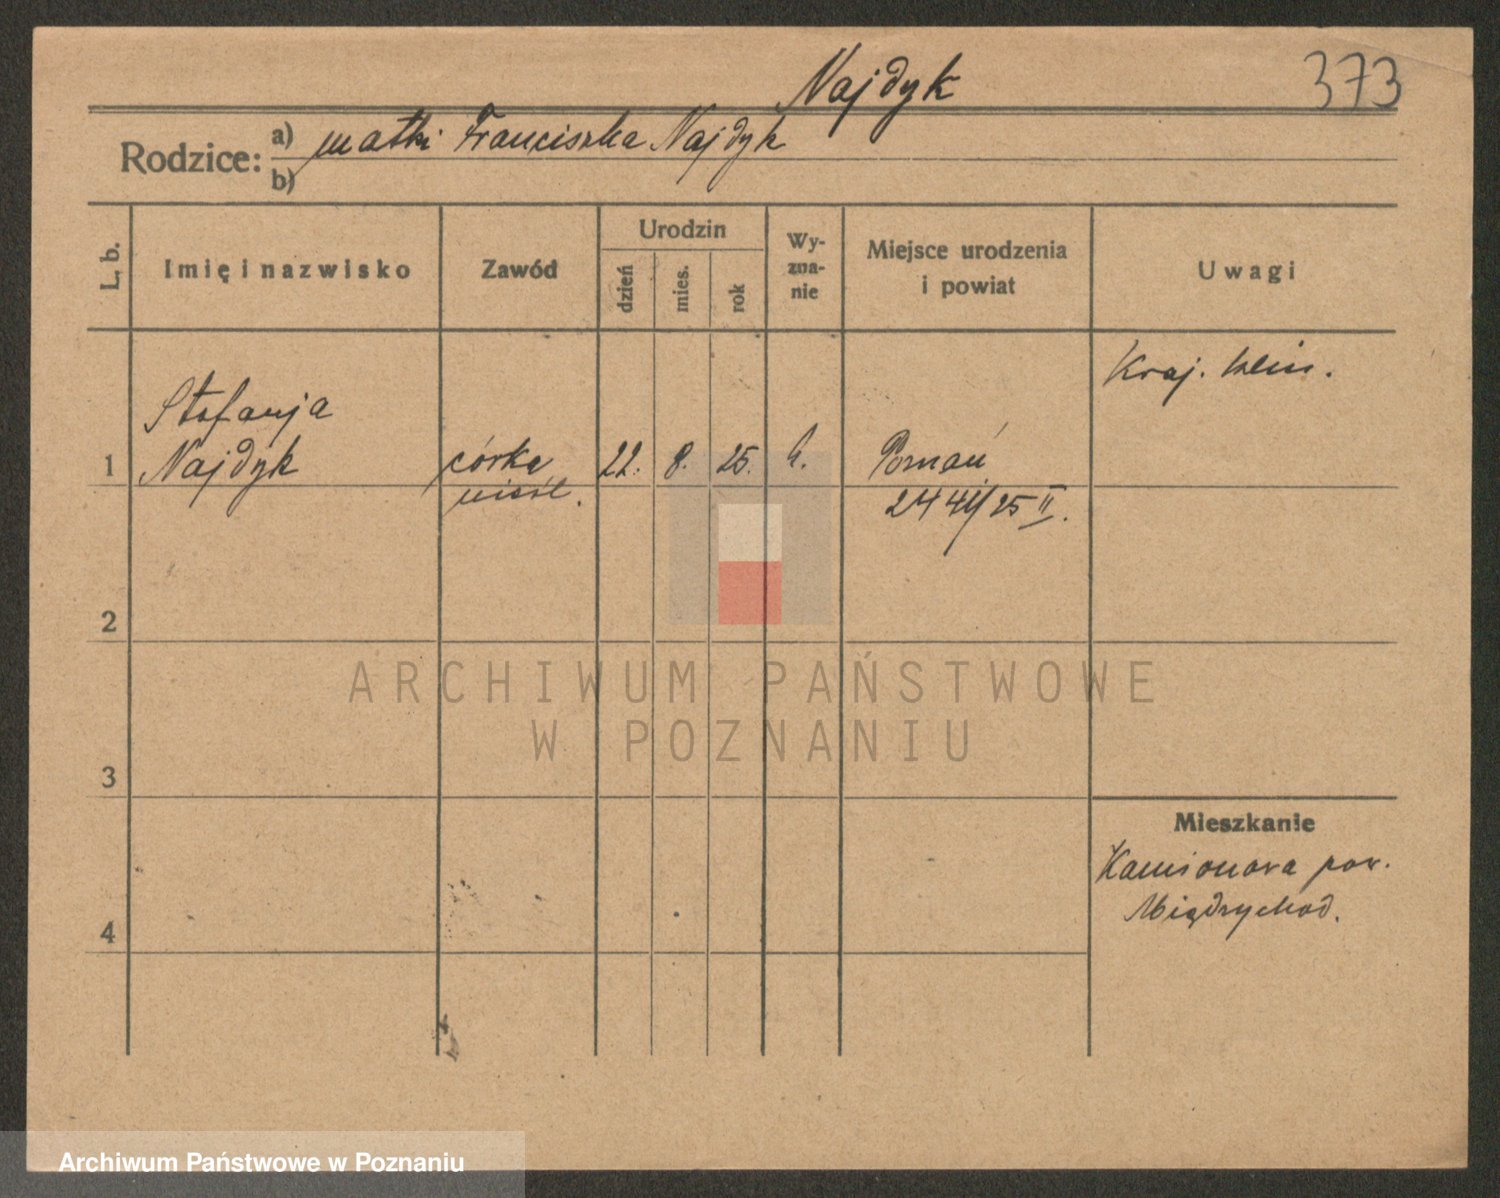 Najdyk
373
Rodzice:
a) matki Franciszka Najdyk
b)
L. b.
Imię i nazwisko
Zawód
Urodzin
dzień
mies.
rok
Wy-
zna-
nie
Miejsce urodzenia
i powiat
Uwagi
Kraj. klin.
Stefanja
1 Najdyk córka 22. 8. 25. k. Poznań
nieśl.
2441/25 II.
2
3
4
Mieszkanie
Kamionora pow.
Międzychod.
ARCHIWUM PAŃSTWOWE
W POZNANIU
Archiwum Państwowe w Poznaniu